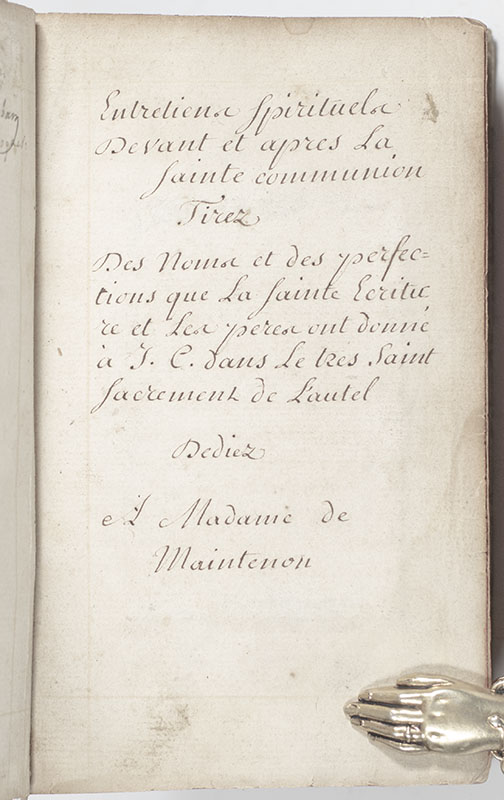 Entretiens spirituels
Devant et apres La
sainte communion
Tirez
Des Noms et des perfec=
tions que La sainte Ecritu
re et Les peres ont donné
à J. C. dans Le tres saint
sacrement de L'autel
Dediez
A Madame de
Maintenon